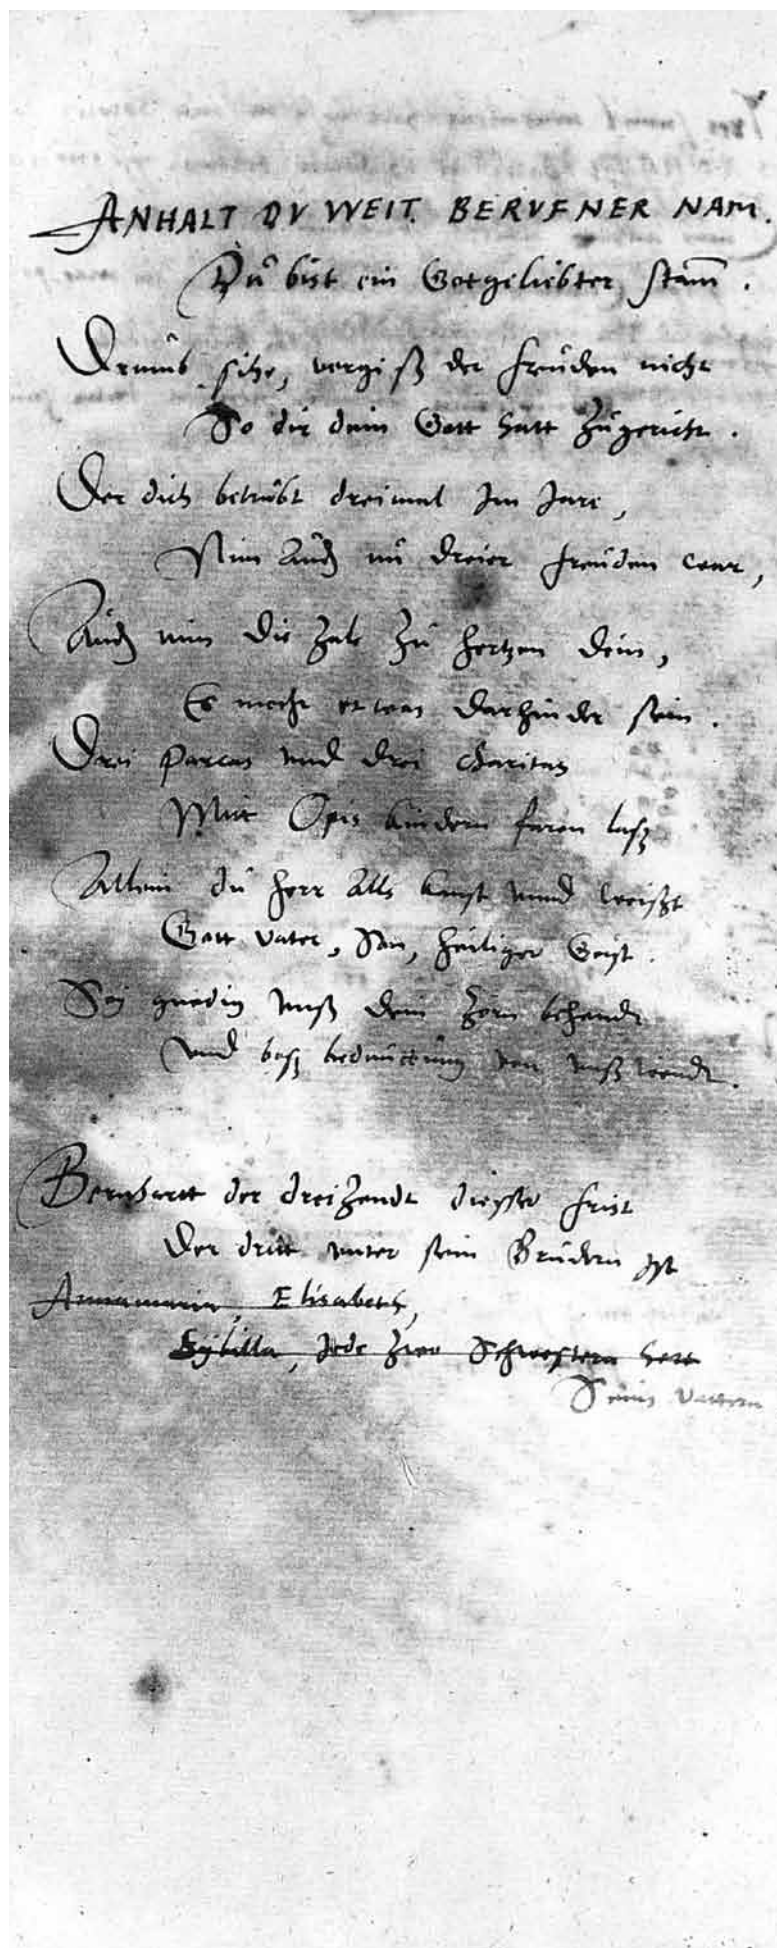 ANHALT DV WEIT. BERVFNER NAM.
Du bist ein Gotgeliebter stam̄.
Drumb sihe, vergiß der freuden nicht
So dir dein Gott hatt zugericht.
Der dich betrübt dreimal Im Jare,
Nim auch nu dreier freuden war,
Auch nim die zale zu hertzen dein,
Es mocht etwas darhinder sein.
Drei Parcas und drei Charitas
Mit Opis kindern faren laß
Allein du herr alls kanst unnd weißt
Gott vater, Son, heiliger Geist.
Sei gnedig unß dein zorn behende
und boß bedeuttung von unß wende.
Bernhartt der dreizende dießer frist
Der dritt unter sein Brüdern ist
Annamaria, Elisabeth,
Sybilla, jede zwo Schwestern hett
Seins Vattern